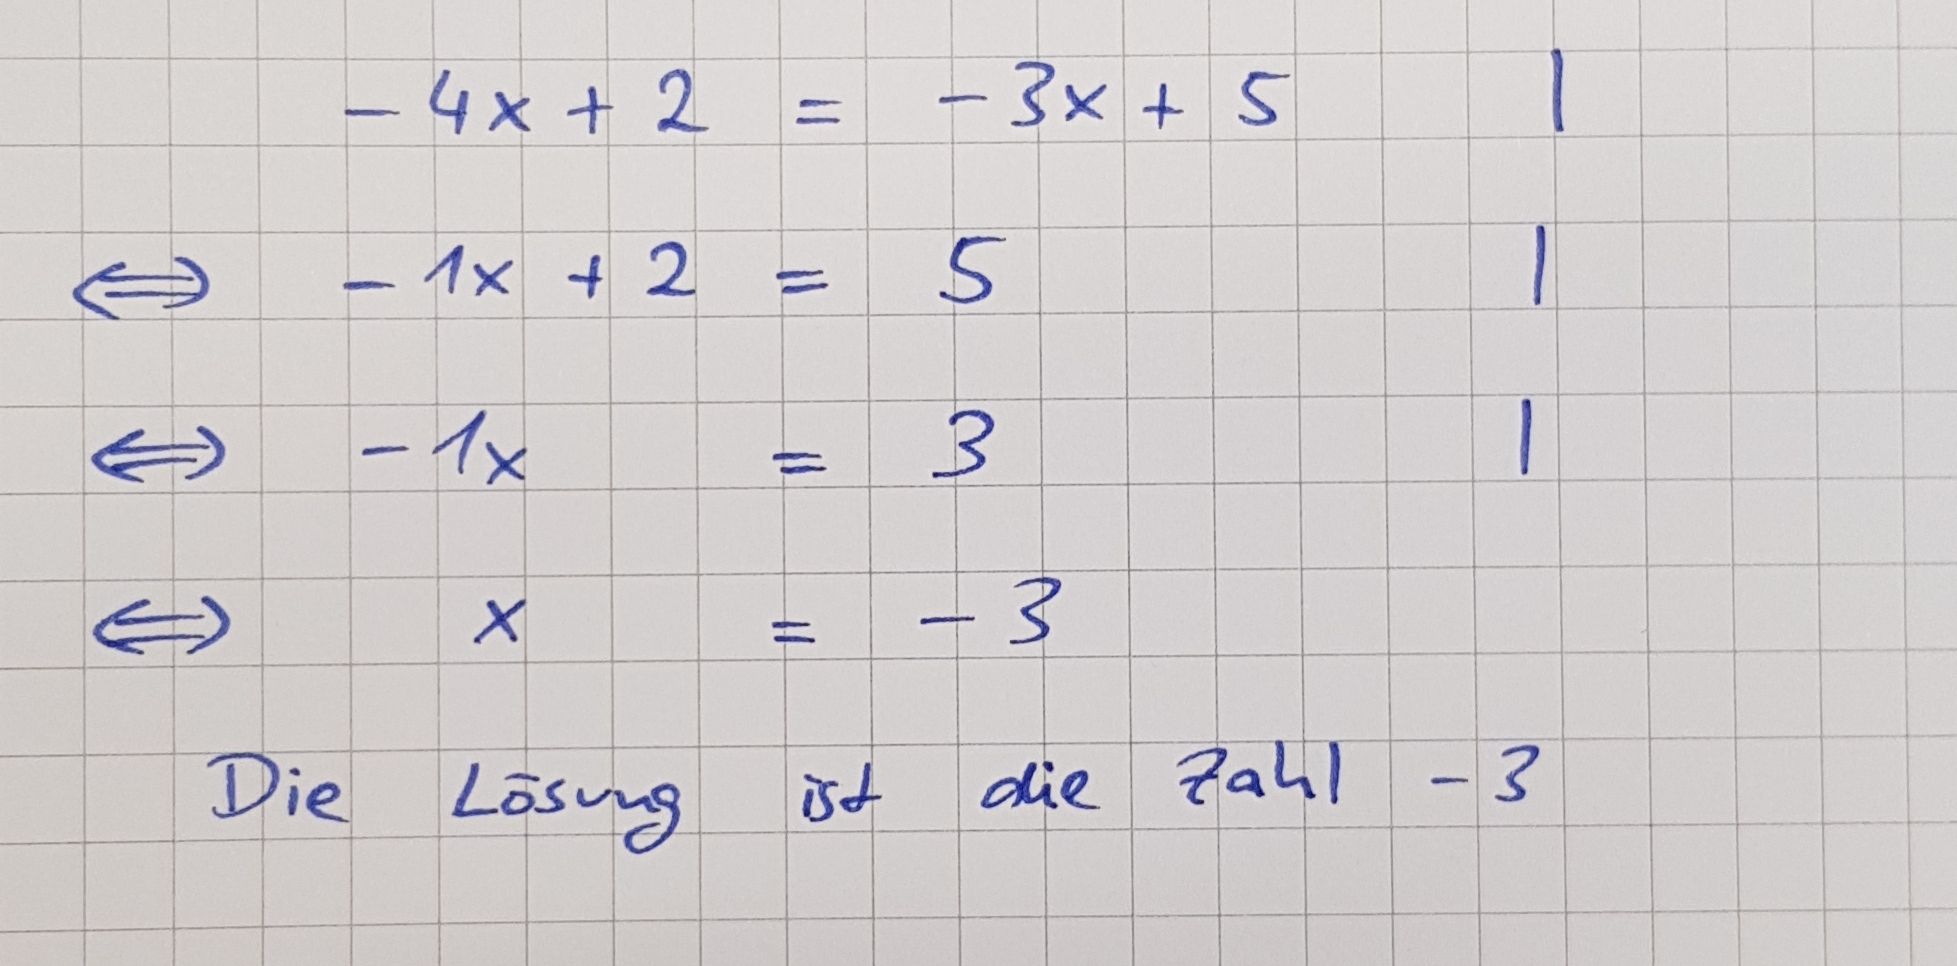 - 4x + 2 = - 3x + 5 |
⇔ - 1x + 2 = 5 |
⇔ - 1x = 3 |
⇔ x = - 3
Die Lösung ist die Zahl - 3